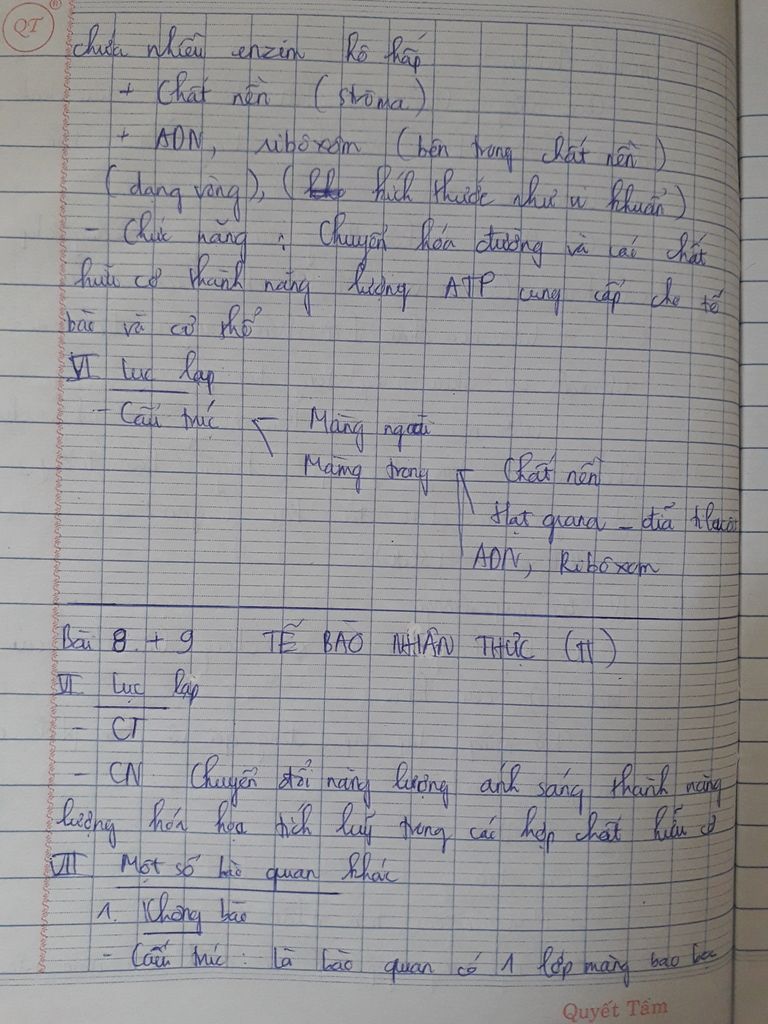 QT
chứa nhiều enzim hô hấp
+ Chất nền (stroma)
+ ADN, ribôxôm (bên trong chất nền)
(dạng vòng), ( kích thước như vi khuẩn)
- Chức năng : Chuyển hóa đường và các chất
hữu cơ thành năng lượng ATP cung cấp cho tế
bào và cơ thể
VI Lục lạp
- Cấu trúc Màng ngoài
Màng trong Chất nền
Hạt grana - đĩa tilacôit
ADN, Ribôxom
Bài 8 + 9 TẾ BÀO NHÂN THỰC (TT)
VI Lục lạp
- CT
- CN Chuyển đổi năng lượng ánh sáng thành năng
lượng hóa học tích luỹ trong các hợp chất hữu cơ
VII Một số bào quan khác
1. Không bào
- Cấu trúc : Là bào quan có 1 lớp màng bao bọc
Quyết Tâm